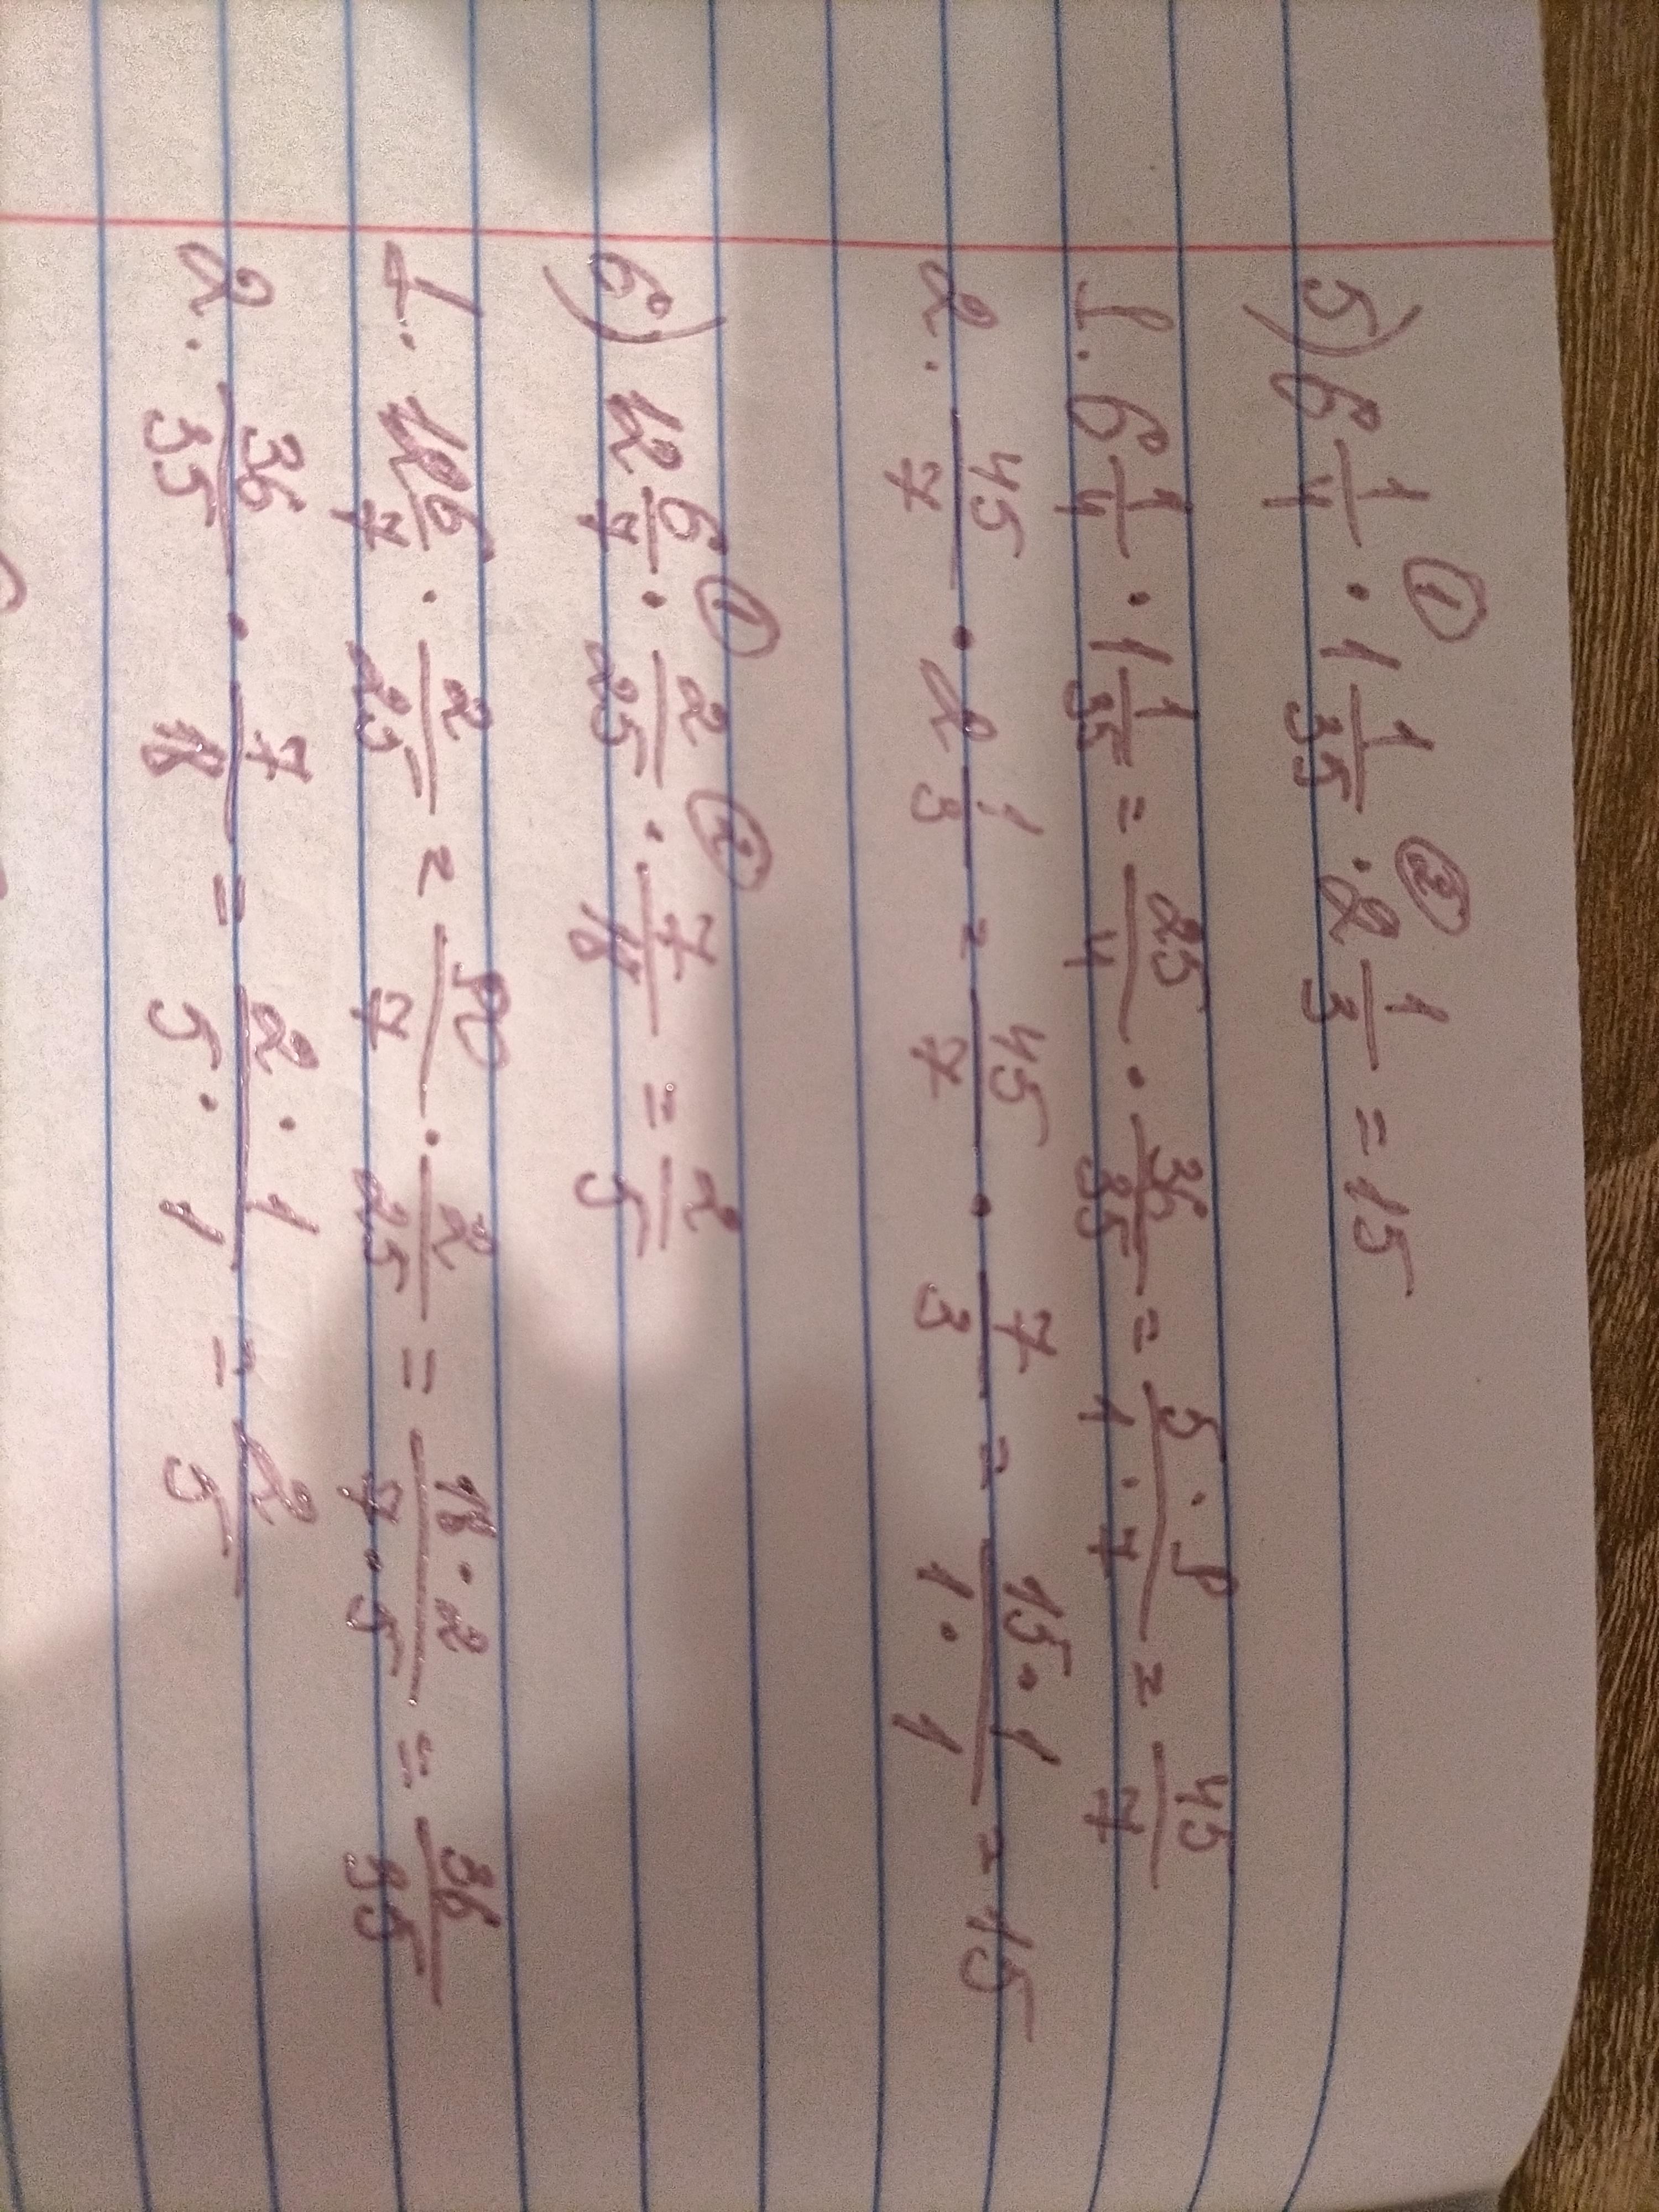 ① ②
5) 6 1/4 · 1 1/35 · 2 1/3 = 15
1. 6 1/4 · 1 1/35 = 25/4 · 36/35 = 5 · 9/1 · 7 = 45/7
2. 45/7 · 2 1/3 = 45/7 · 7/3 = 15 · 1/1 · 1 = 15
① ②
6) 12 6/7 · 2/25 · 7/18 = 2/5
1. 12 6/7 · 2/25 = 90/7 · 2/25 = 18 · 2/7 · 5 = 36/35
2. 36/35 · 7/18 = 2 · 1/5 · 1 = 2/5